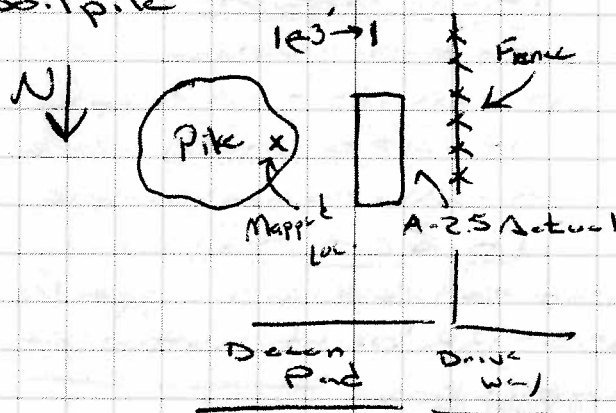 soil pile
N
Fence
Pile x
Mapped
Loc
A-2.5 Actual
Decon
Pad
Drive
way